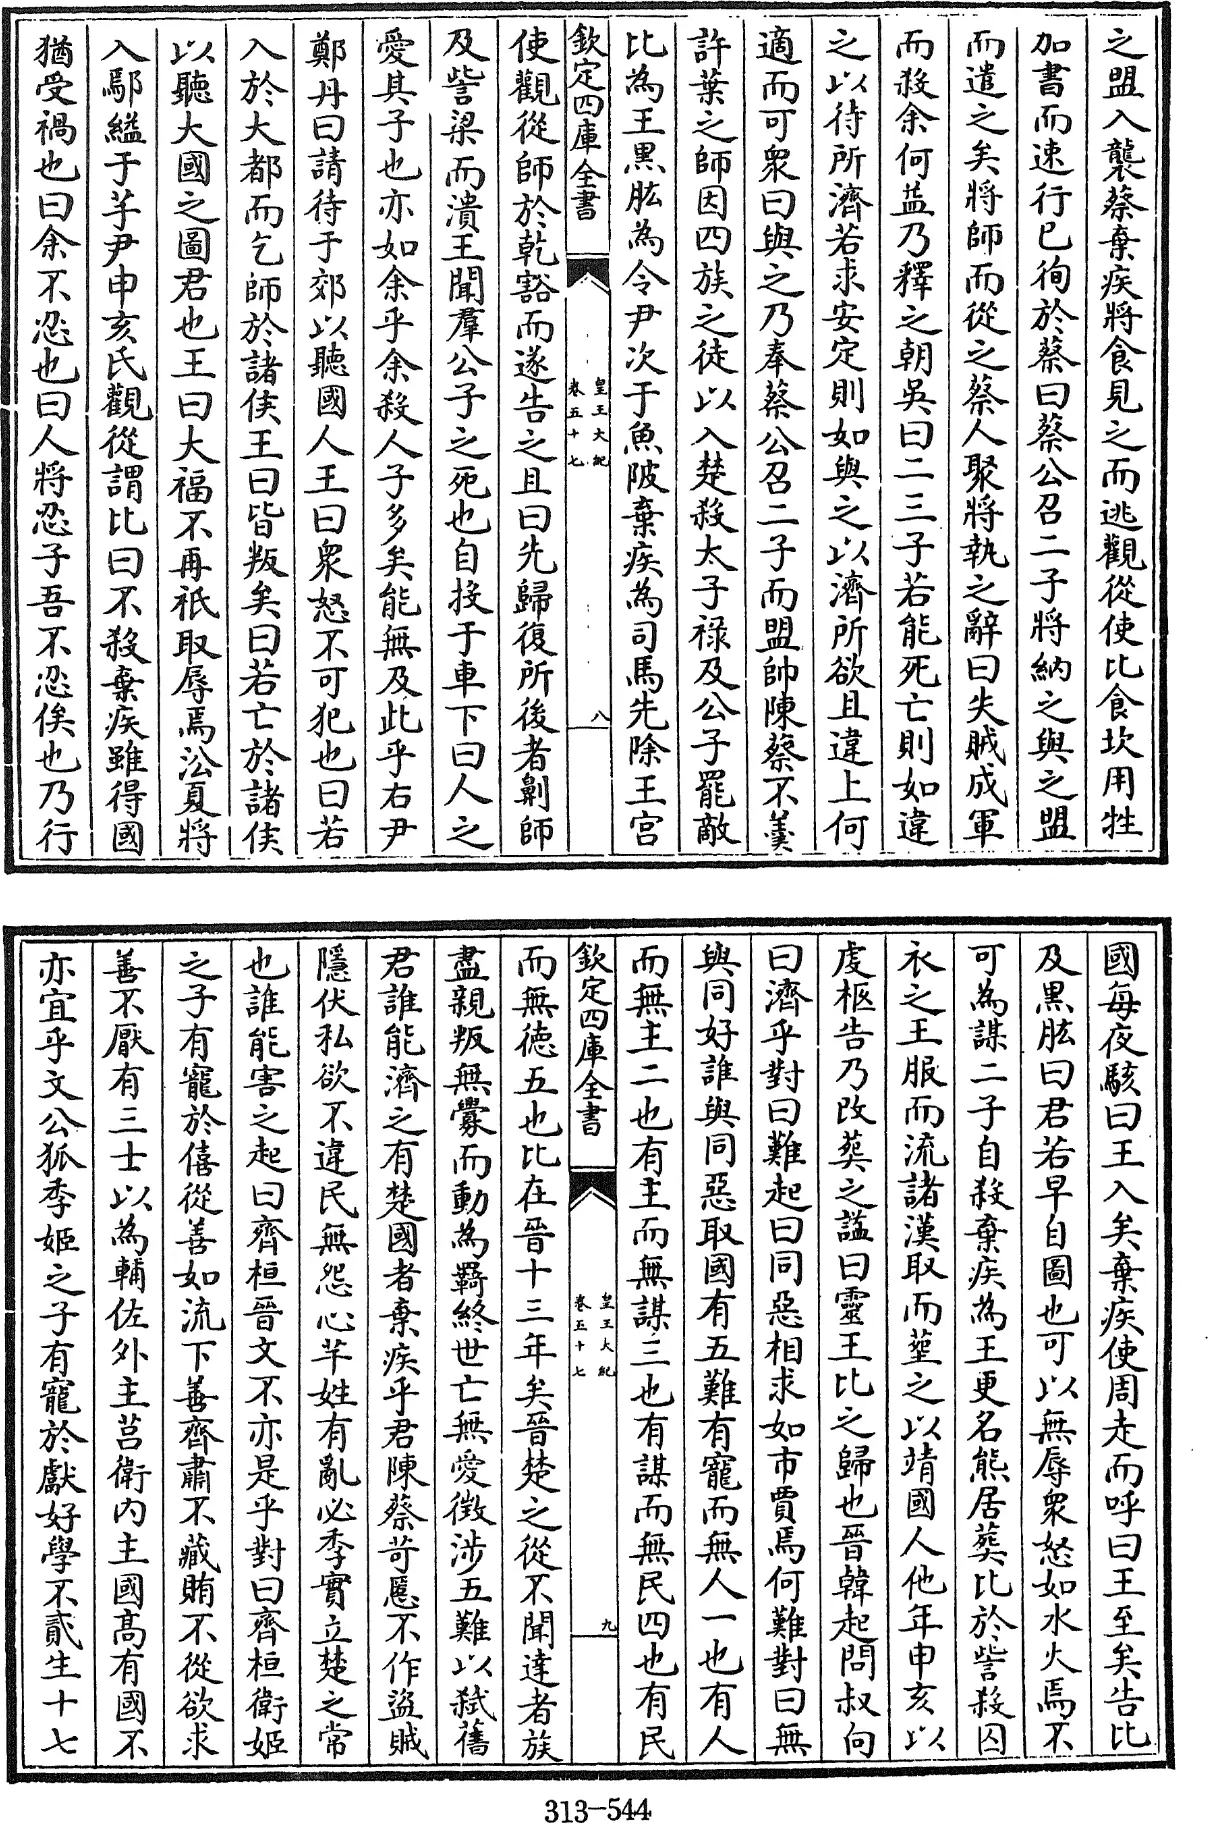 之盟入襲蔡棄疾將食見之而逃觀從使比食坎用牲
加書而速行已徇於蔡曰蔡公召二子將納之與之盟
而遣之矣將師而從之蔡人聚將執之辭曰失賊成軍
而殺余何益乃釋之朝吳曰二三子若能死亡則如違
之以待所濟若求安定則如與之以濟所欲且違上何
適而可衆曰與之乃奉蔡公召二子而盟帥陳蔡不羹
許葉之師因四族之徒以入楚殺太子祿及公子罷敵
比為王黒肱為令尹次于魚陂棄疾為司馬先除王宮
欽定四庫全書
皇王大紀
卷五十七
八
使觀從師於乾谿而遂告之且曰先歸復所後者劓師
及訾梁而潰王聞羣公子之死也自投于車下曰人之
愛其子也亦如余乎余殺人子多矣能無及此乎右尹
鄭丹曰請待于郊以聽國人王曰衆怒不可犯也曰若
入於大都而乞師於諸侯王曰皆叛矣曰若亡於諸侯
以聽大國之圖君也王曰大福不再祇取辱焉沿夏將
入鄢縊于芋尹申亥氏觀從謂比曰不殺棄疾雖得國
猶受禍也曰余不忍也曰人將忍子吾不忍俟也乃行
國每夜駭曰王入矣棄疾使周走而呼曰王至矣告比
及黒肱曰君若早自圖也可以無辱衆怒如水火焉不
可為謀二子自殺棄疾為王更名熊居葬比於訾殺囚
衣之王服而流諸漢取而塟之以靖國人他年申亥以
䖍柩告乃改葬之諡曰靈王比之歸也晉韓起問叔向
曰濟乎對曰難起曰同惡相求如市賈焉何難對曰無
與同好誰與同惡取國有五難有寵而無人一也有人
而無主二也有主而無謀三也有謀而無民四也有民
欽定四庫全書
皇王大紀
卷五十七
九
而無徳五也比在晉十三年矣晉楚之從不聞達者族
盡親叛無釁而動為羇終世亡無愛徴涉五難以弑舊
君誰能濟之有楚國者棄疾乎君陳蔡苛慝不作盜賊
隱伏私欲不違民無怨心芊姓有亂必季實立楚之常
也誰能害之起曰齊桓晉文不亦是乎對曰齊桓衛姬
之子有寵於僖從善如流下善齊肅不藏賄不從欲求
善不厭有三士以為輔佐外主莒衛内主國高有國不
亦宜乎文公狐季姬之子有寵於獻好學不貳生十七
313-544